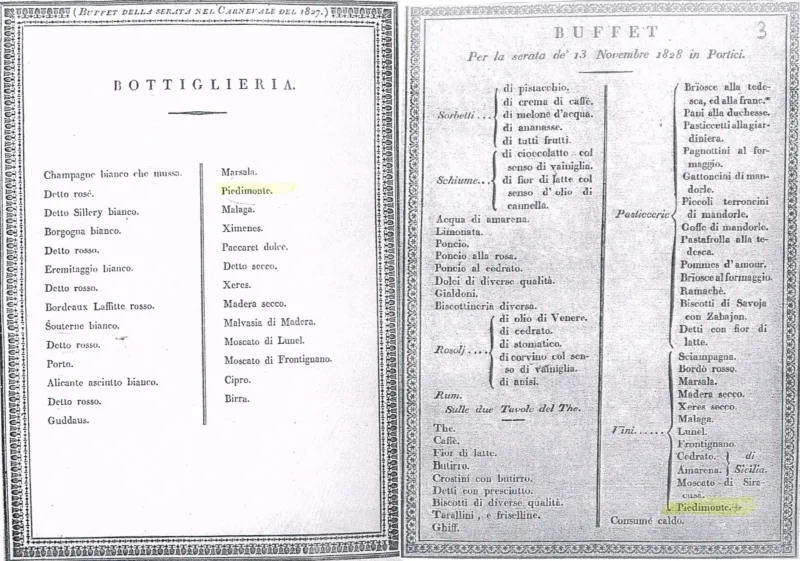 (BUFFET DELLA SERATA NEL CARNEVALE DEL 1827.)
BOTTIGLIERIA.
Champagne bianco che mussa.
Detto rosé.
Detto Sillery bianco.
Borgogna bianco.
Detto rosso.
Eremitaggio bianco.
Detto rosso.
Bordeaux Laffitte rosso.
Souterne bianco.
Detto rosso.
Porto.
Alicante asciutto bianco.
Detto rosso.
Guddaus.
Marsala.
Piedimonte.
Malaga.
Ximenes.
Paccaret dolce.
Detto secco.
Xeres.
Madera secco.
Malvasia di Madera.
Moscato di Lunel.
Moscato di Frontignano.
Cipro.
Birra.
3
BUFFET
Per la serata de' 13 Novembre 1828 in Portici.
Sorbetti...
di pistacchio.
di crema di caffè.
di melone d'acqua.
di ananasse.
di tutti frutti.
Schiume...
di cioccolatto col
senso di vainiglia.
di fior di latte col
senso d'olio di
cannella.
Acqua di amarena.
Limonata.
Poncio.
Poncio alla rosa.
Poncio al cedrato.
Dolci di diverse qualità.
Gialdoni.
Biscottineria diversa.
Rosolj....
di olio di Venere.
di cedrato.
di stomatico.
di corvino col sen-
so di vainiglia.
di anisi.
Rum.
Sulle due Tavole del The.
The.
Caffè.
Fior di latte.
Butirro.
Crostini con butirro.
Detti con presciutto.
Biscotti di diverse qualità.
Tarallini, e friselline.
Ghiff.
Pasticcerie
Briosce alla tede-
sca, ed alla franc.
Pani alla duchesse.
Pasticcetti alla giar-
diniera.
Pagnottini al for-
maggio.
Gattoncini di man-
dorle.
Piccoli terroncini
di mandorle.
Goffe di mandorle.
Pastafrolla alla te-
desca.
Pommes d'amour.
Briosce al formaggio.
Ramachè.
Biscotti di Savoja
con Zabajon.
Detti con fior di
latte.
Vini......
Sciampagna.
Bordò rosso.
Marsala.
Madera secco.
Xeres secco.
Malaga.
Lunel.
Frontignano.
Cedrato. di
Amarena. Sicilia.
Moscato di Sira-
cusa.
Piedimonte.
Consumé caldo.